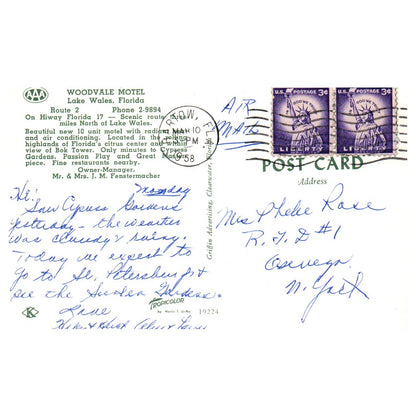 AAA
WOODVALE MOTEL
Lake Wales, Florida
Route 2 Phone 2-9894
On Hiway Florida 17 — Scenic route three
miles North of Lake Wales.
Beautiful new 10 unit motel with radiant
and air conditioning. Located in the rolling
highlands of Florida's citrus center and within
view of Bok Tower. Only minutes to Cypress
Gardens, Passion Play and Great Masterpiece.
Fine restaurants nearby.
Owner-Manager.
Mr. & Mrs. J. M. Fenstermacher
Monday
Hi:
Saw Cypress Gardens
yesterday - the weather
was cloudy & rainy.
Today we expect to
go to St. Petersburg &
see the Sunken Gardens.
Love
K
TROPICOLOR
19224
BARTOW, FLA.
MAR 10
PM
1958
AIR
MAIL
U.S. POSTAGE 3¢
IN GOD WE TRUST
LIBERTY
U.S. POSTAGE 3¢
IN GOD WE TRUST
LIBERTY
POST CARD
Address
Miss Phebe Rose
R.F.D #1
Oswego
N. York